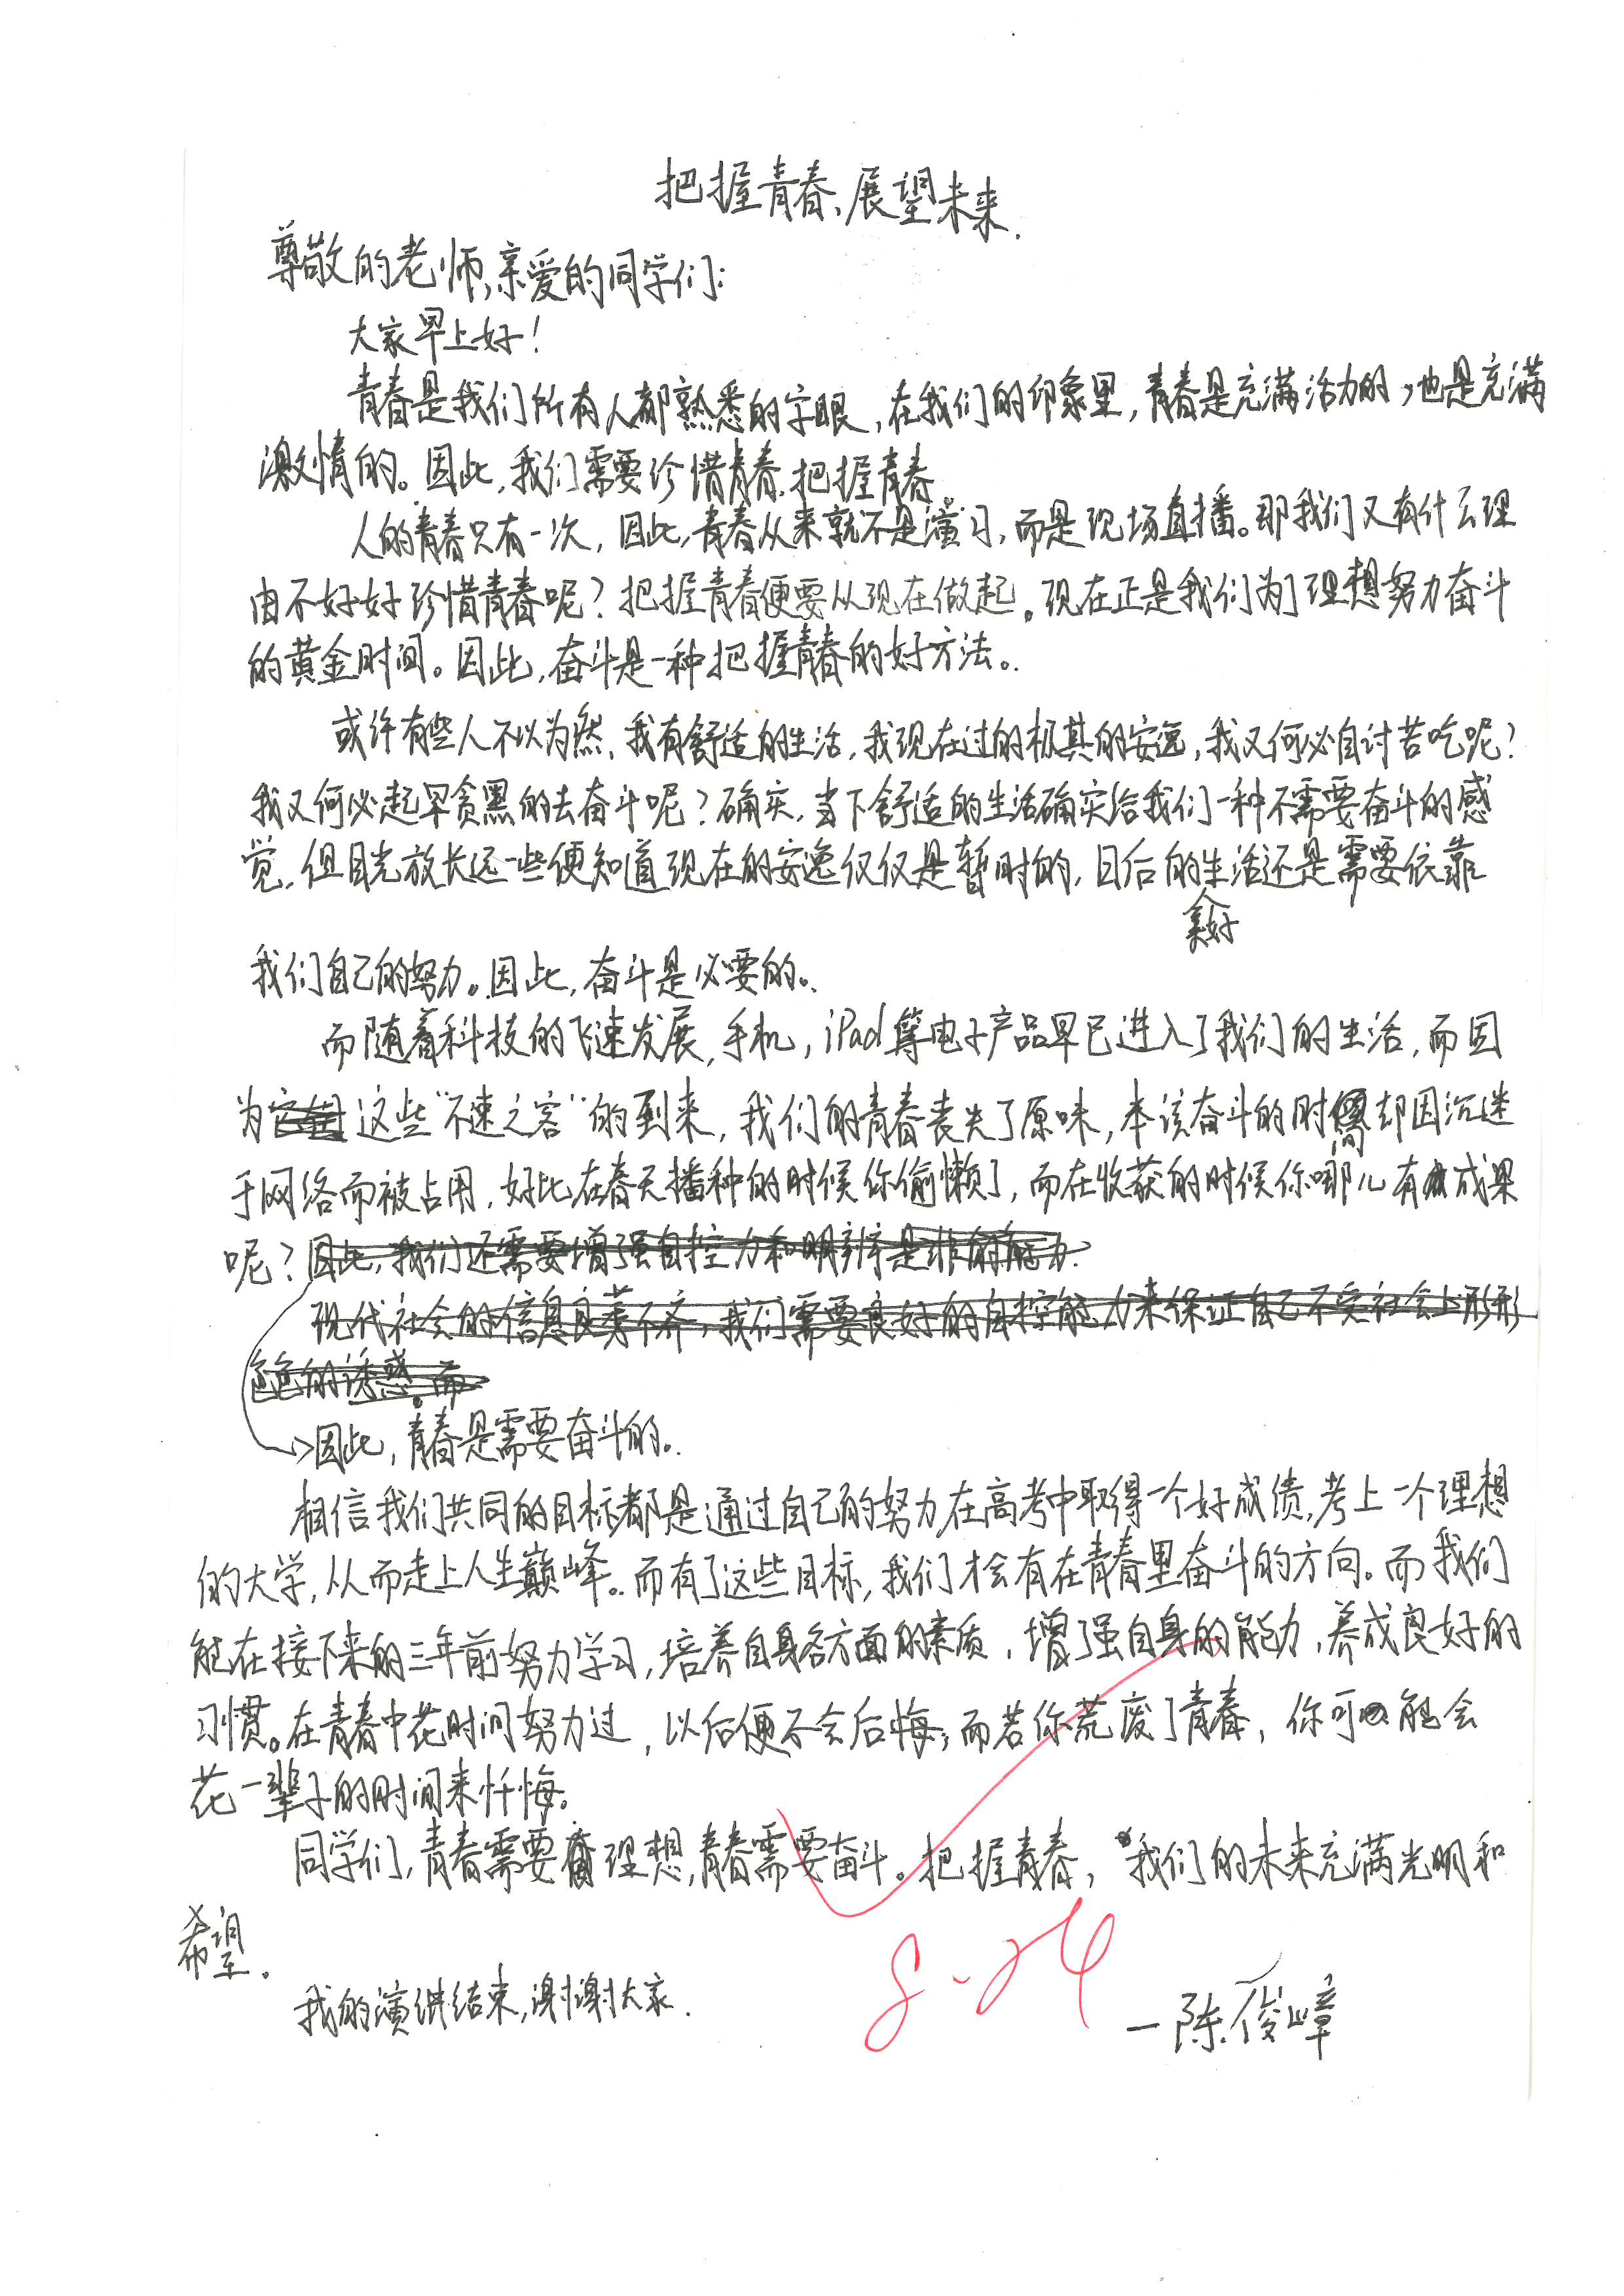 把握青春、展望未来.
尊敬的老师,亲爱的同学们:
大家早上好!
青春是我们所有人都熟悉的字眼,在我们的印象里,青春是充满活力的,也是充满
激情的。因此,我们需要珍惜青春,把握青春。
人的青春只有一次,因此,青春从来就不是演习,而是现场直播。那我们又有什么理
由不好好珍惜青春呢?把握青春便要从现在做起。现在正是我们为了理想努力奋斗
的黄金时间。因此,奋斗是一种把握青春的好方法。
或许有些人不以为然,我有舒适的生活,我现在过的极其的安逸,我又何必自讨苦吃呢?
我又何必起早贪黑的去奋斗呢?确实,当下舒适的生活确实给我们一种不需要奋斗的感
觉,但目光放长远一些便知道现在的安逸仅仅是暂时的,日后的生活还是需要依靠
美好
我们自己的努力。因此,奋斗是必要的。
而随着科技的飞速发展,手机,iPad等电子产品早已进入了我们的生活,而因
为这些“不速之客”的到来,我们的青春丧失了原味,本该奋斗的时间却因沉迷
于网络而被占用,好比在春天播种的时候你偷懒了,而在收获的时候你哪儿有成果
呢?因此,我们还需要增强自控力和明辨是非的能力.
现代社会的信息良莠不齐,我们需要良好的自控能力来保证自己不受社会上形形
色色的诱惑。而
因此,青春是需要奋斗的。
相信我们共同的目标都是通过自己的努力,在高考中取得一个好成绩,考上一个理想
的大学,从而走上人生巅峰。而有了这些目标,我们才会有在青春里奋斗的方向。而我们
能在接下来的三年前努力学习,培养自身各方面的素质,增强自身的能力,养成良好的
习惯。在青春中花时间努力过,以后便不会后悔;而若你荒废了青春,你可能会
花一辈子的时间来忏悔。
同学们,青春需要理想,青春需要奋斗。把握青春,我们的未来充满光明和
希望。
我的演讲结束,谢谢大家.
8-24
—陈俊嶂